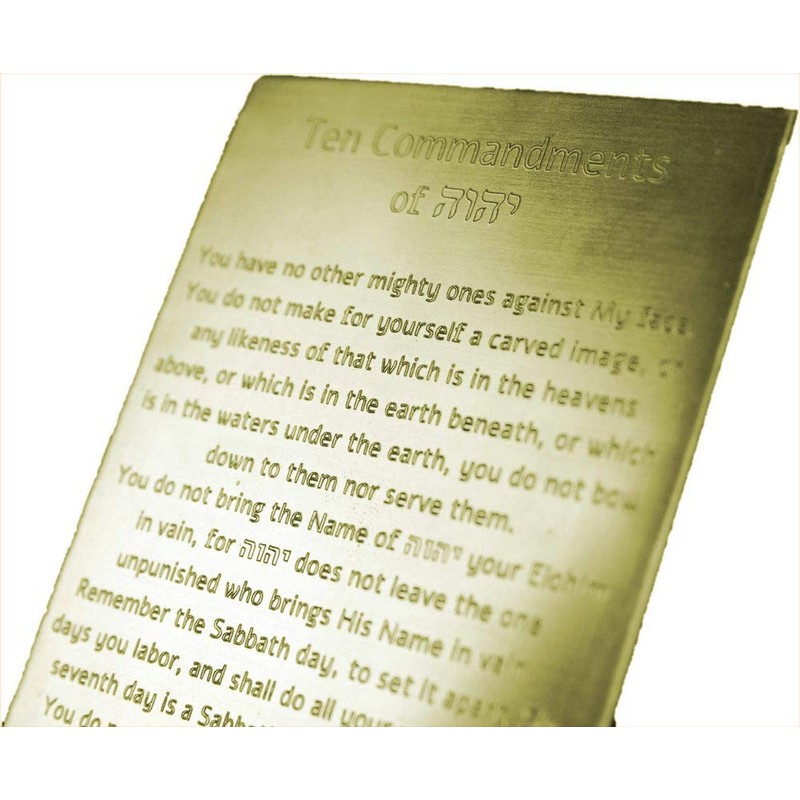 Ten Commandments
of יהוה
You have no other mighty ones against My face.
You do not make for yourself a carved image, or
any likeness of that which is in the heavens
above, or which is in the earth beneath, or which
is in the waters under the earth, you do not bow
down to them nor serve them.
You do not bring the Name of יהוה your Elohim
in vain, for יהוה does not leave the one
unpunished who brings His Name in vain
Remember the Sabbath day, to set it apart.
days you labor, and shall do all your
seventh day is a Sabbath
You do